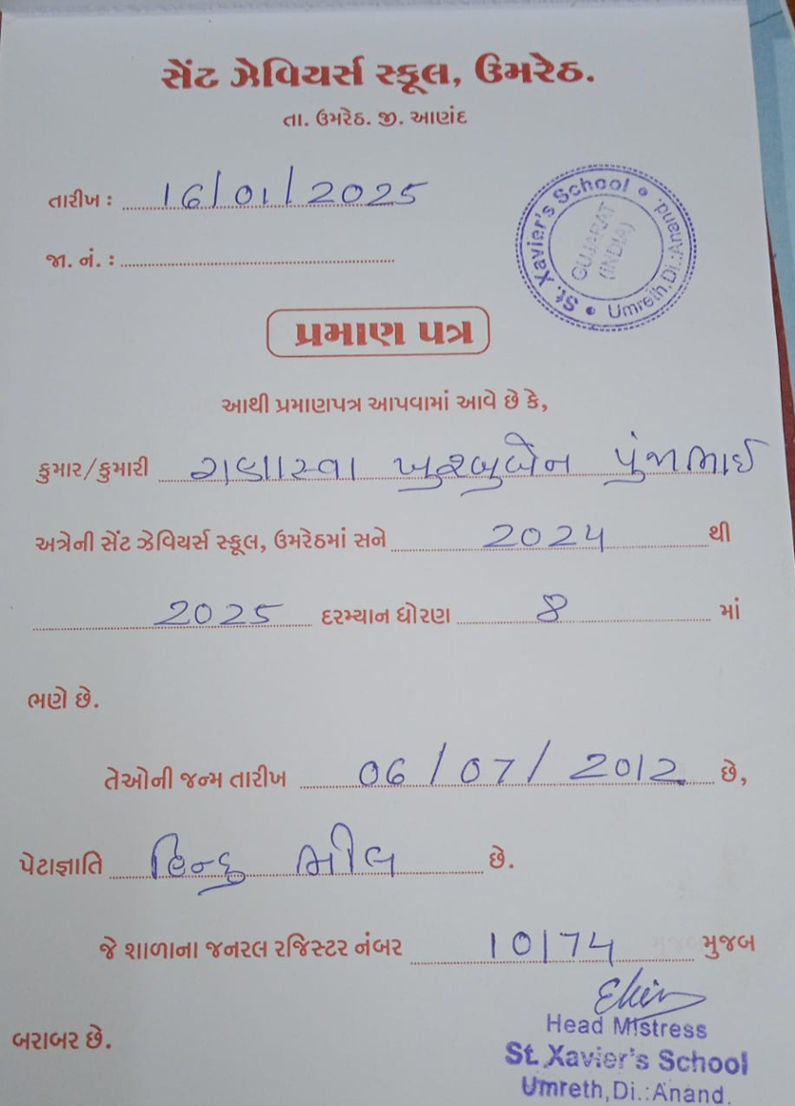 સેંટ ઝેવિયર્સ સ્કૂલ, ઉમરેઠ.
તા. ઉમરેઠ. જી. આણંદ
તારીખ : 16/01/2025
જા. નં. :
St. Xavier's School • Umreth, Di.: Anand. •
GUJARAT
(INDIA)
પ્રમાણ પત્ર
આથી પ્રમાણપત્ર આપવામાં આવે છે કે,
કુમાર/કુમારી ખુશ્બુબેન પુંજાભાઈ
અત્રેની સેંટ ઝેવિયર્સ સ્કૂલ, ઉમરેઠમાં સને 2024 થી
2025 દરમ્યાન ધોરણ 8 માં
ભણે છે.
તેઓની જન્મ તારીખ 06/07/2012 છે,
પેટાજ્ઞાતિ હિન્દુ ભીલ છે.
જે શાળાના જનરલ રજિસ્ટર નંબર 10174 મુજબ
બરાબર છે.
Head Mistress
St. Xavier's School
Umreth, Di.: Anand.